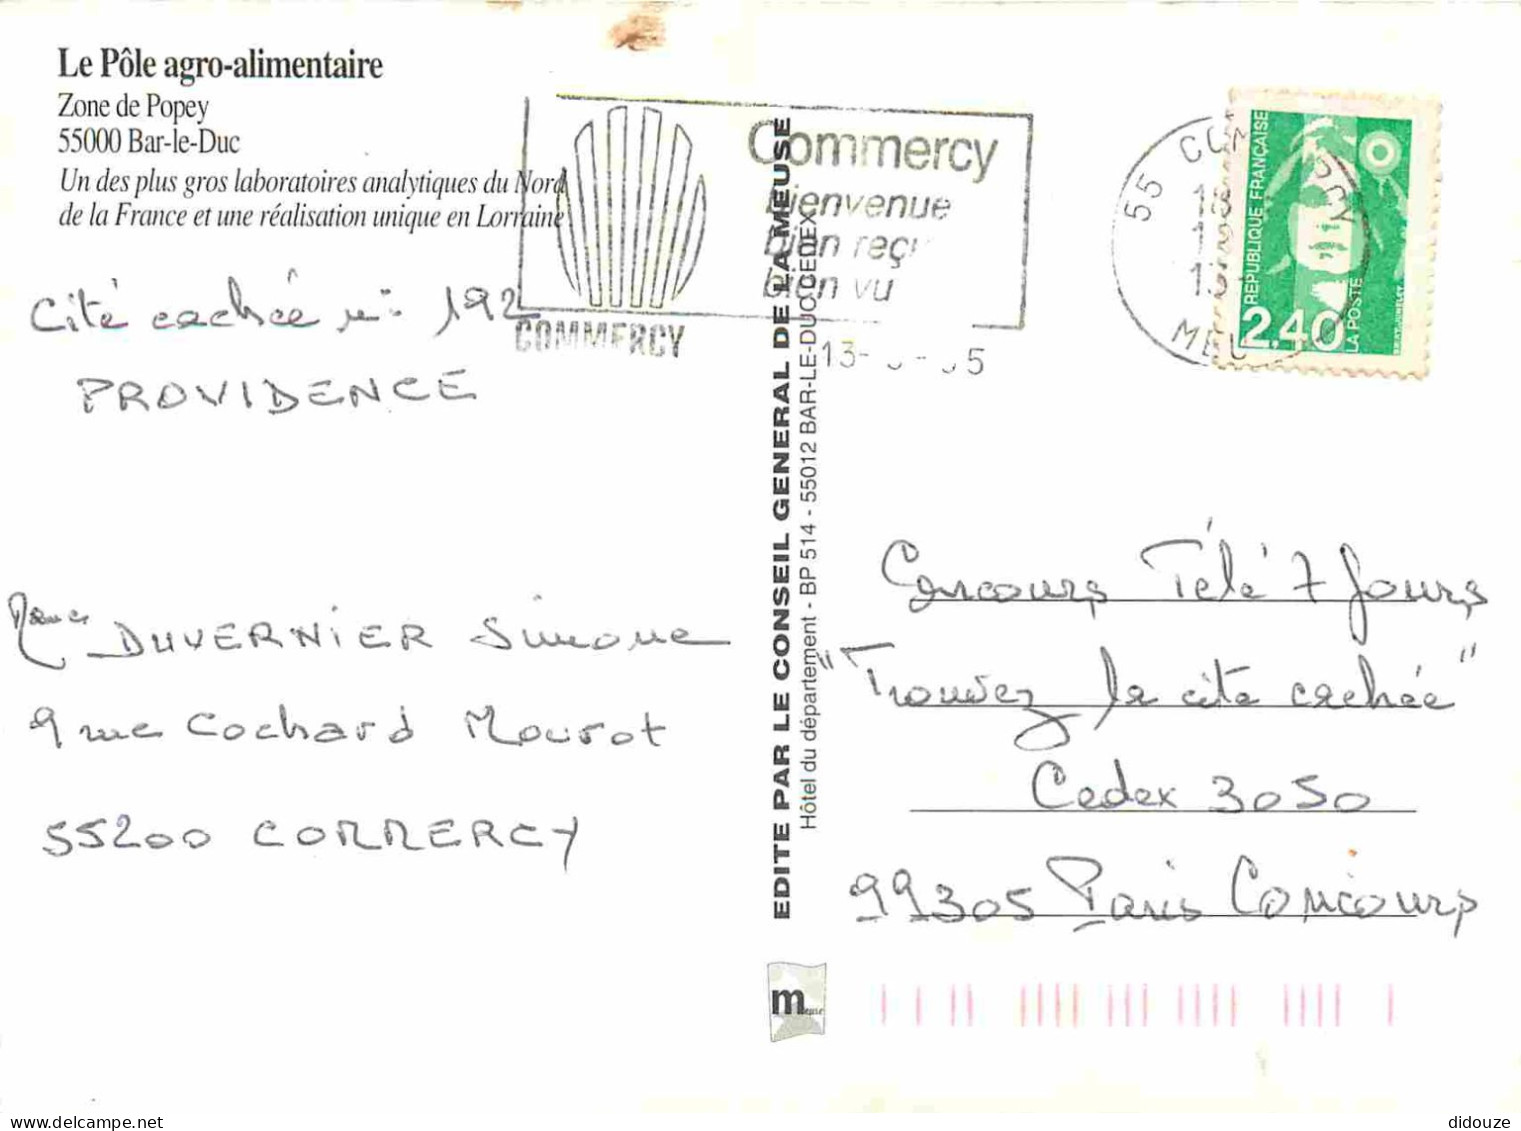 Le Pôle agro-alimentaire
Zone de Popey
55000 Bar-le-Duc
Un des plus gros laboratoires analytiques du Nord
de la France et une réalisation unique en Lorraine
Cité cachée n° 192
PROVIDENCE
Mme DUVERNIER Simone
9 rue Cochard Mourot
55200 COMMERCY
COMMERCY
Commercy
bienvenue
bien reçu
bien vu
EDITE PAR LE CONSEIL GENERAL DE LA MEUSE
Hôtel du département - BP 514 - 55012 BAR-LE-DUC CEDEX
55
REPUBLIQUE FRANÇAISE
2,40
LA POSTE
Concours Télé 7 Jours
"Trouvez la cité cachée"
Cedex 3050
99305 Paris Concours
meuse
didouze